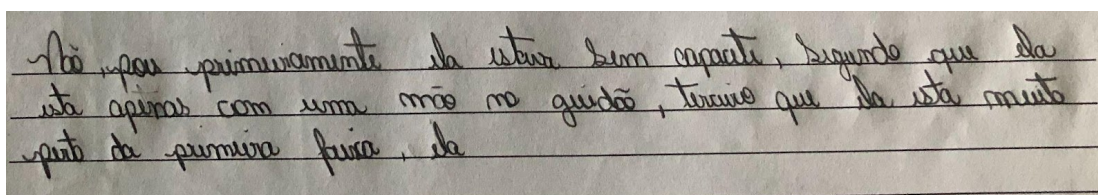 Não, pois primeiramente ela estava sem capacete, segundo que ela
esta apenas com uma mão no guidão, terceiro que ela esta muito
perto da primeira faixa, ela